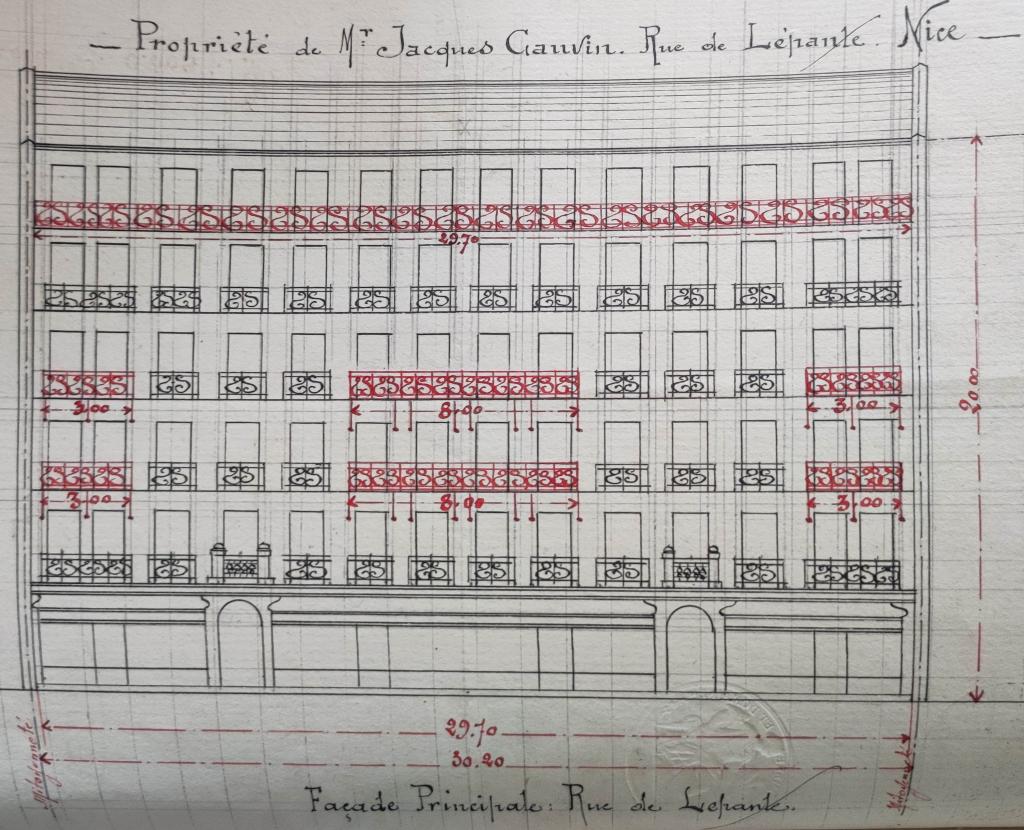 — Propriété de Mr Jacques Gauvin. Rue de Lépante. Nice —
29.70
3,00 8,00 3,00
20.00
3,00 8,00 3,00
29.70
30.20
Mitoyenneté
Façade Principale: Rue de Lepante.